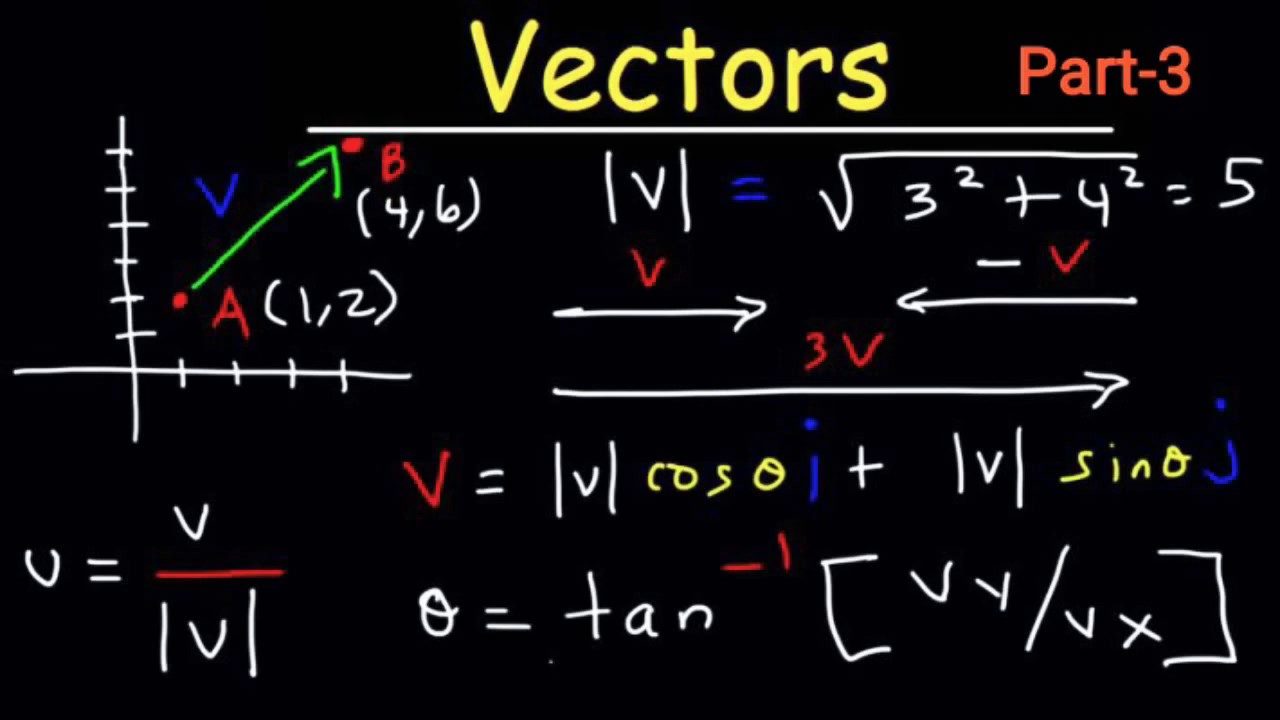 Vectors Part-3
V B
(4,6)
A (1,2)
|V| = √3² + 4² = 5
V
- V
3V
V = |v| cosθ i + |v| sinθ j
u = v / |v|
θ = tan⁻¹ [vy/vx]